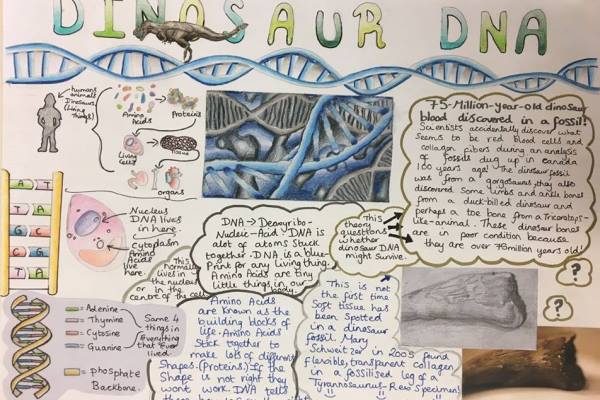 DINOSAUR DNA
humans
animals
Dinosaurs
(Living
things)
Amino
Acids
Proteins
Living
cells
Tissue
organs
75-Million-year-old dinosaur
blood discovered in a fossil!
Scientists accidentally discover what
seems to be red blood cells and
collagen fibers during an analysis
of fossils dug up in canada
100 years ago! The dinosaur fossil
was from a gorgosaurus, they also
discovered some limbs and ankle bones
from a duck-billed dinosaur and
perhaps a toe bone from a Triceratops-
like-animal. These dinosaur bones
are in poor condition because
they are over 75million years old!
T A
T A
C G
G C
T A
Nucleus
DNA lives
in here.
Cytoplasm
Amino
Acids
live
here.
This
normally
lives in
the nucleus
or in the
centre of the cell
DNA → Deoxyribo-
Nucleic-Acid. DNA is
alot of atoms stuck
together. DNA is a blue-
Print for any living thing.
Amino Acids are tiny
little things in our
body.
This
theory
questions
whether
dinosaur DNA
might survive.
? 
?
Adenine
Thymine
Cytosine
Guanine
Same 4
things in
Everything
that Ever
lived.
phosphate
Backbone.
Amino Acids
are known as the
building blocks of
life. Amino Acids
Stick together to
make lots of different
Shapes. (Proteins). If the
Shape is not right they
wont work. DNA tells
This is not
the first time
Soft tissue has
been spotted
in a dinosaur
fossil. Mary
Schweitzer in 2005 found
flexible, transparent collagen
in a fossilised leg of a
Tyrannosaurus-Rex Specimen!